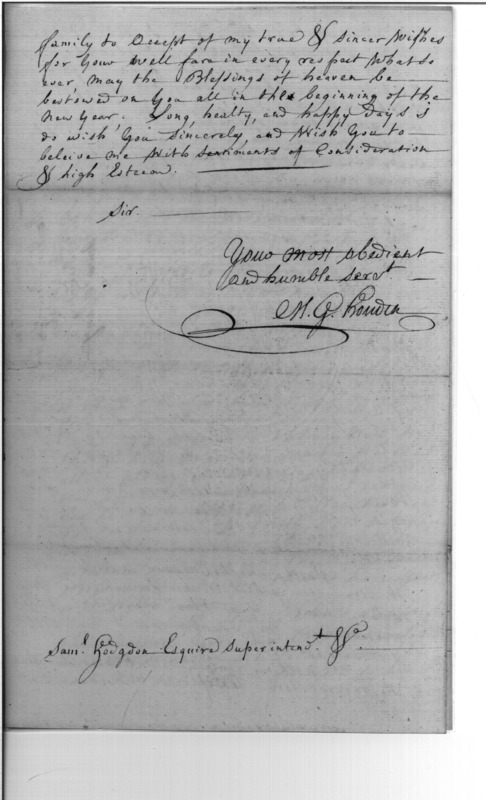 family to Accept of my true & Sincer Wishes
for Your well fare in every respect What so
ever, may the Blessings of heaven be
bestowed on You all in the beginning of the
new Year. Long, healty, and happy Days I
do wish You Sincerely, and Wish You to
beleive me With Sentiments of Consideration
& high Esteem.
Sir.
Your most obedient
and humble Servt
M. G.
Saml Hodgdon Esquire Superintendt &c